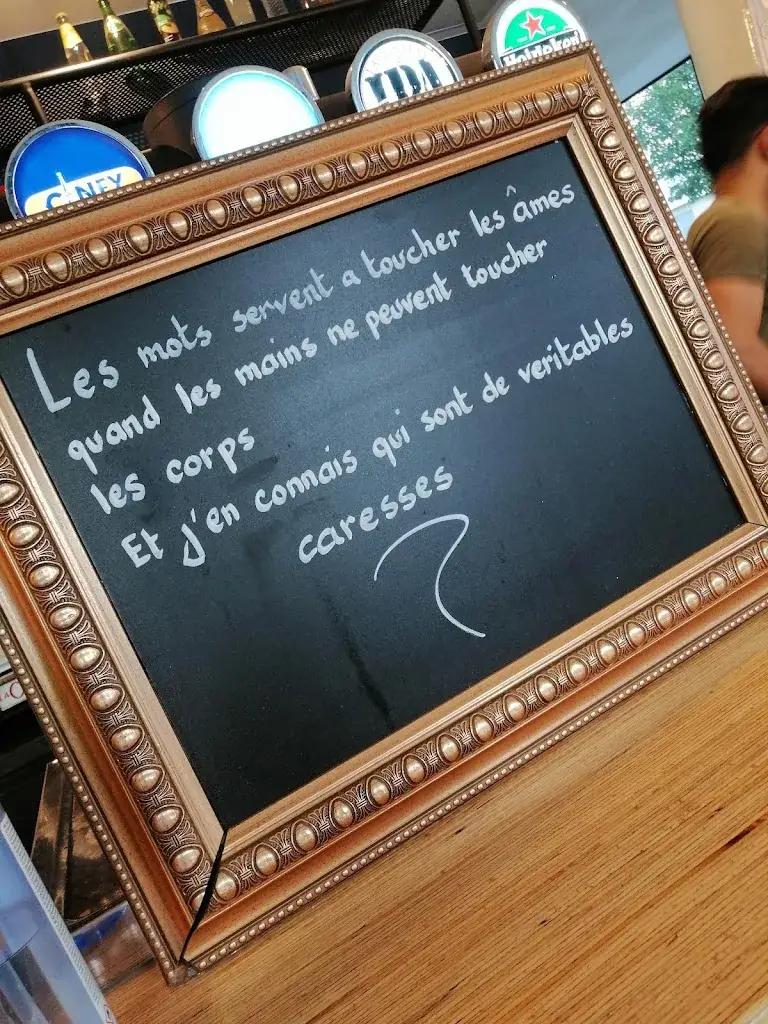 CINEY
IPA
Heineken
Les mots servent a toucher les âmes
quand les mains ne peuvent toucher
les corps
Et j'en connais qui sont de veritables
caresses